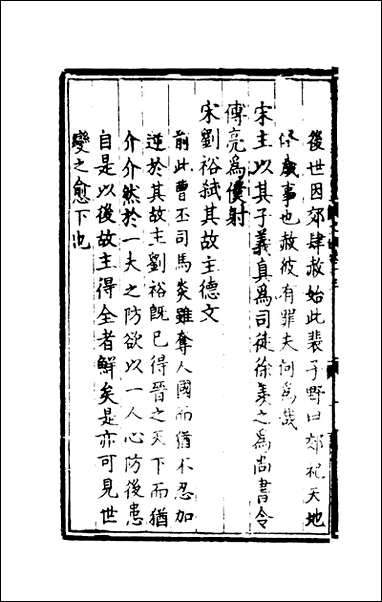 後世因郊肆赦始此裴子野曰郊祀天地
修歲事也赦彼有罪夫何為哉
宋主以其子義真為司徒徐羨之為尚書令
傅亮為僕射
宋劉裕弒其故主德文
前此曹丕司馬炎雖奪人國而猶不忍加
逆於其故主劉裕旣已得晉之天下而猶
介介然於一夫之防欲以一人心防後患
自是以後故主得全者鮮矣是亦可見世
變之愈下也